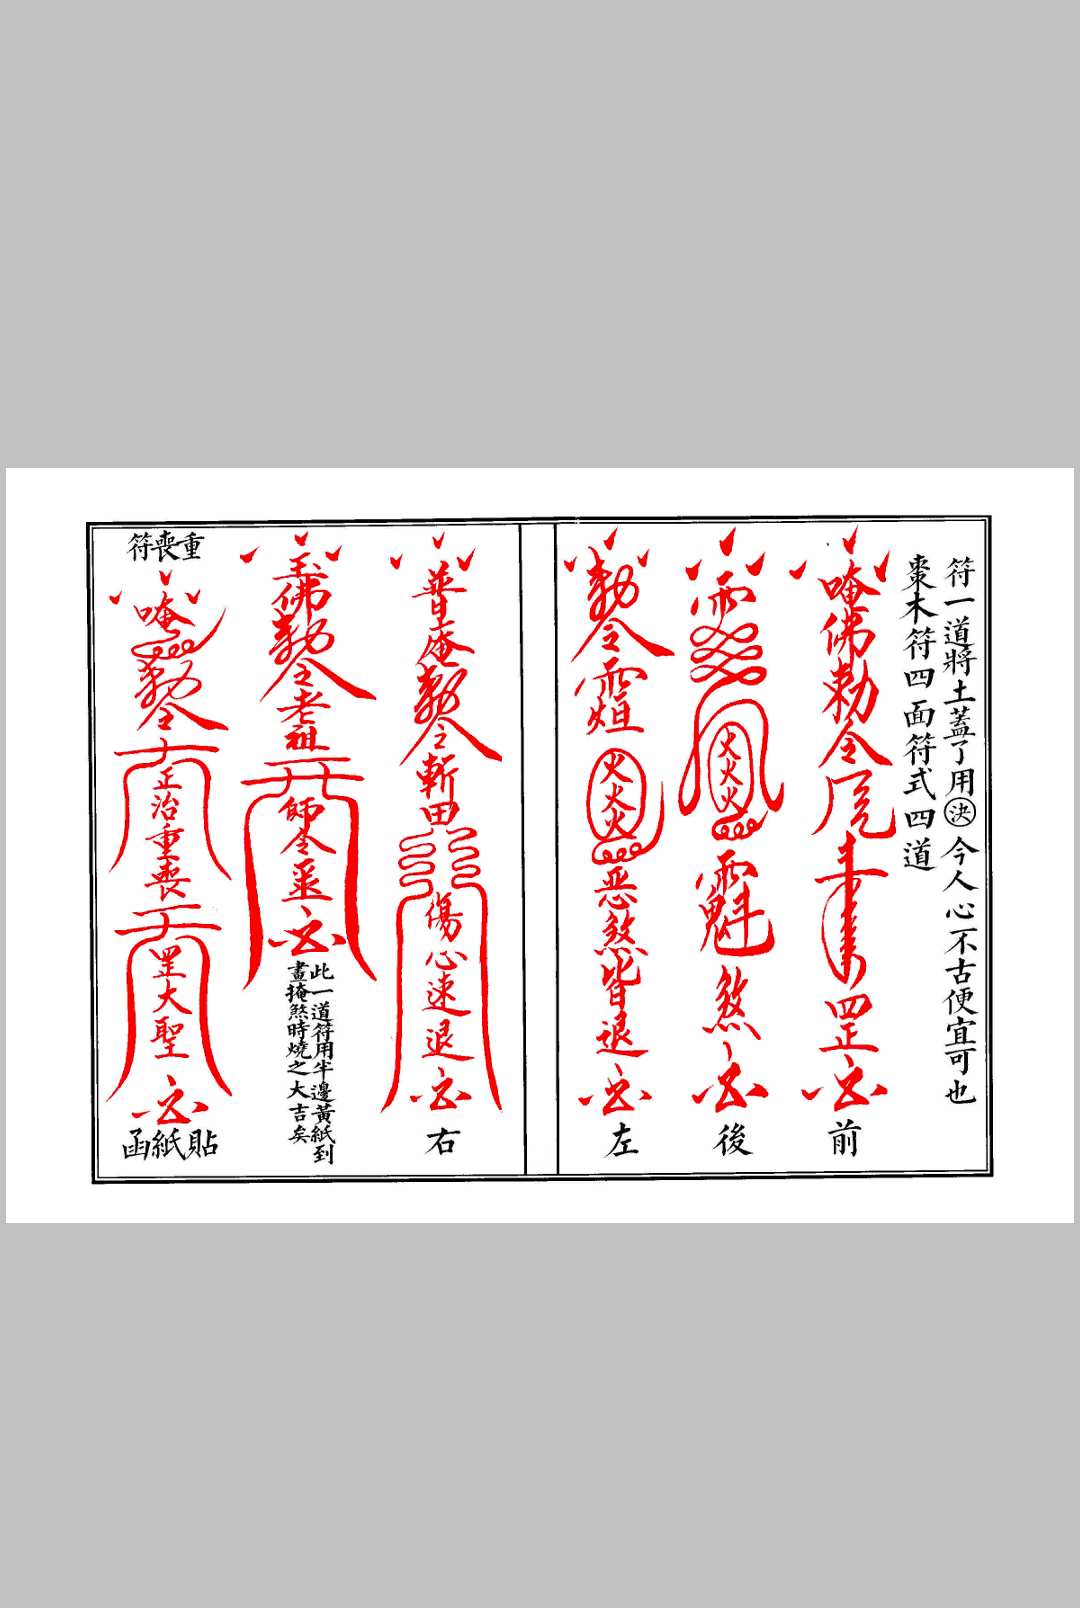 符一道將土蓋了用決今人心不古便宜可也
棗木符四面符式四道
唵佛勅令
罡
前
火火火
魁
煞
後
勅令
火火火
惡煞皆退
左
普庵勅令斬田
傷心速退
右
玉佛勅令老祖
師令
此一道符用半邊黃紙到
晝掩煞時燒之大吉矣
重喪符
唵
勅令
正治重喪
罡大聖
貼紙函